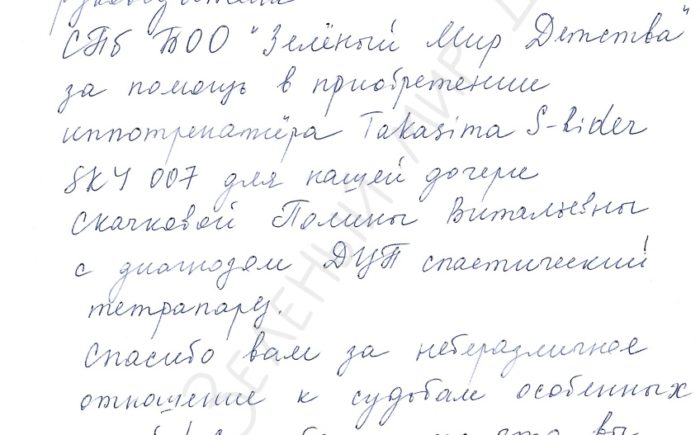 СПб БОО "Зелёный Мир Детства"
за помощь в приобретение
иппотренажёра Takasima S-Rider
SKY 007 для нашей дочери
Скачковой Полины Витальевны
с диагнозом ДЦП спастический
тетрапарез.
Спасибо вам за небезразличное
отношение к судьбам особенных
ЗЕЛЕНЫЙ МИР Д